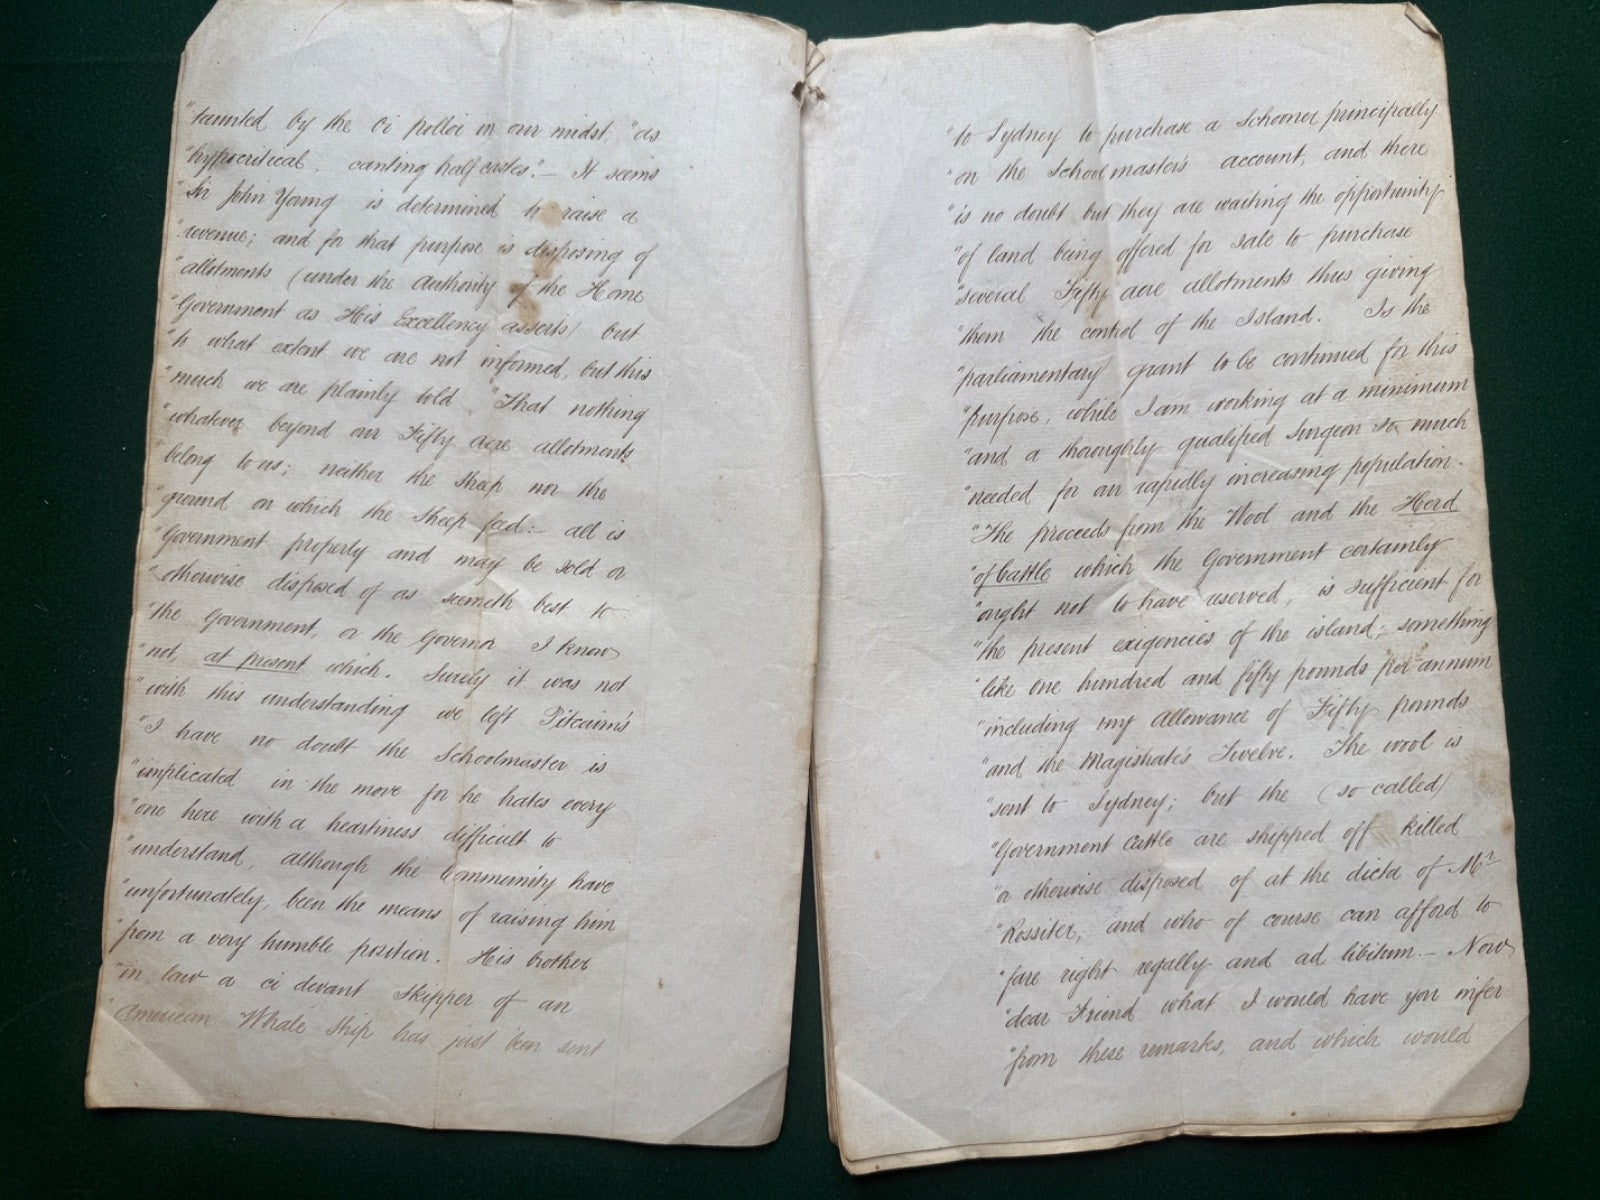 "taunted by the oi polloi in our midst, "as
"hypocritical, canting half castes". — It seems
"Sir John Young is determined to raise a
"revenue; and for that purpose is disposing of
"allotments (under the authority of the Home
"Government as His Excellency asserts) but
"to what extent we are not informed, but this
"much we are plainly told "That nothing
"whatever beyond our Fifty acre allotments
"belong to us; neither the sheep nor the
"ground on which the sheep feed:— all is
"Government property and may be sold or
"otherwise disposed of as seemeth best to
"the Government, or the Governor I know
"not, at present which. Surely it was not
"with this understanding we left Pitcairn's
"I have no doubt the Schoolmaster is
"implicated in the move for he hates every
"one here with a heartiness difficult to
"understand, although the Community have
"unfortunately, been the means of raising him
"from a very humble position. His brother
"in law a ci devant Skipper of an
"American Whale Ship has just been sent
"to Sydney to purchase a Schooner principally
"on the Schoolmaster's account, and there
"is no doubt but they are waiting the opportunity
"of land being offered for sale to purchase
"several Fifty acre allotments thus giving
"them the control of the Island. Is the
"parliamentary grant to be continued for this
"purpose, while I am working at a minimum
"and a thoroughly qualified Surgeon so much
"needed for our rapidly increasing population.
"The proceeds from the Wool and the Herd
"of Cattle which the Government certainly
"ought not to have reserved, is sufficient for
"the present exigencies of the island; something
"like one hundred and fifty pounds per annum
"including my allowance of Fifty pounds
"and the Magistrate's Twelve. The wool is
"sent to Sydney; but the (so called)
"Government Cattle are shipped off killed
"or otherwise disposed of at the dicta of Mr
"Rossiter, and who of course can afford to
"fare right regally and ad libitum. — Now
"dear Friend what I would have you infer
"from these remarks, and which would